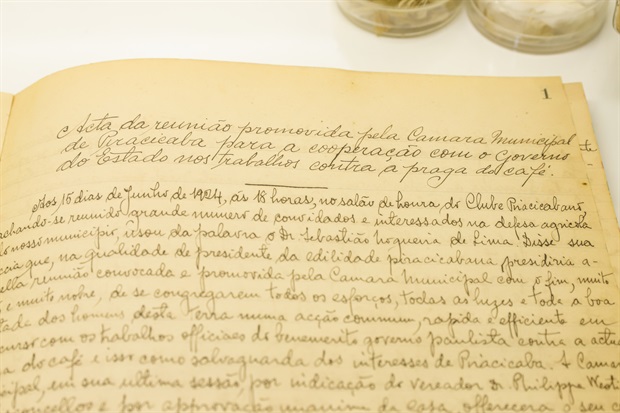 1
Acta da reunião promovida pela Camara Municipal
de Piracicaba para a cooperação com o Governo
do Estado nos trabalhos contra a praga do café.
Aos 15 dias de Junho, de 1924, ás 18 horas, no salão de honra, do Clube Piracicabano,
achando-se reunido grande numero de convidados e interessados na defesa agricola
do nosso municipio, usou da palavra o Dr Sebastião Nogueira de Lima. Disse sua
cia que, na qualidade de presidente da edilidade piracicabana presidiria a-
ella reunião convocada e promovida pela Camara Municipal com o fim, muito
e muito nobre, de se congregarem todos os esforços, todas as luzes e toda a boa
tade dos homens desta terra numa acção commum, rapida e efficiente em
curso com os trabalhos officiaes do benemerito governo paulista contra a actu
a do café e isso como salvaguarda dos interesses de Piracicaba. A Camar
ipal, em sua ultima sessão, por indicação do vereador Dr. Philippe Westi
concellos e por approvação unanime da casa, offerecera seu c